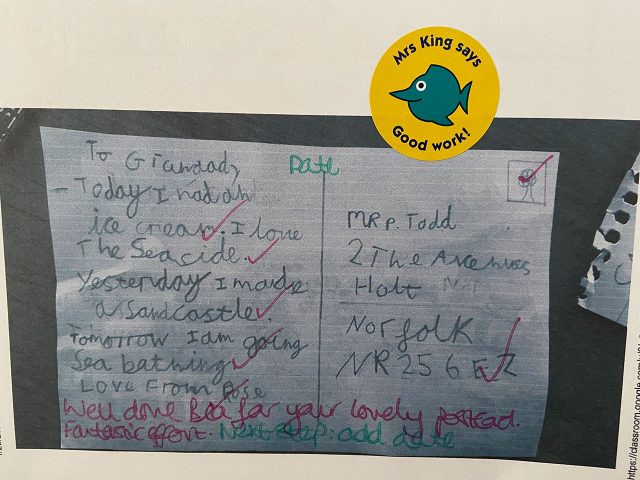 Mrs King says
Good work!
To Grandady
Date
- Today I had an
ice cream. I love
The Seaside.
Yesterday I made
a Sandcastle.
Tomorrow I am going
Sea bathing
Love From Rose
MR P. Todd
2 The Avenues
Holt
Norfolk
NR25 6EZ
Well done Bea for your lovely postcard.
Fantastic effort. Next step: add date